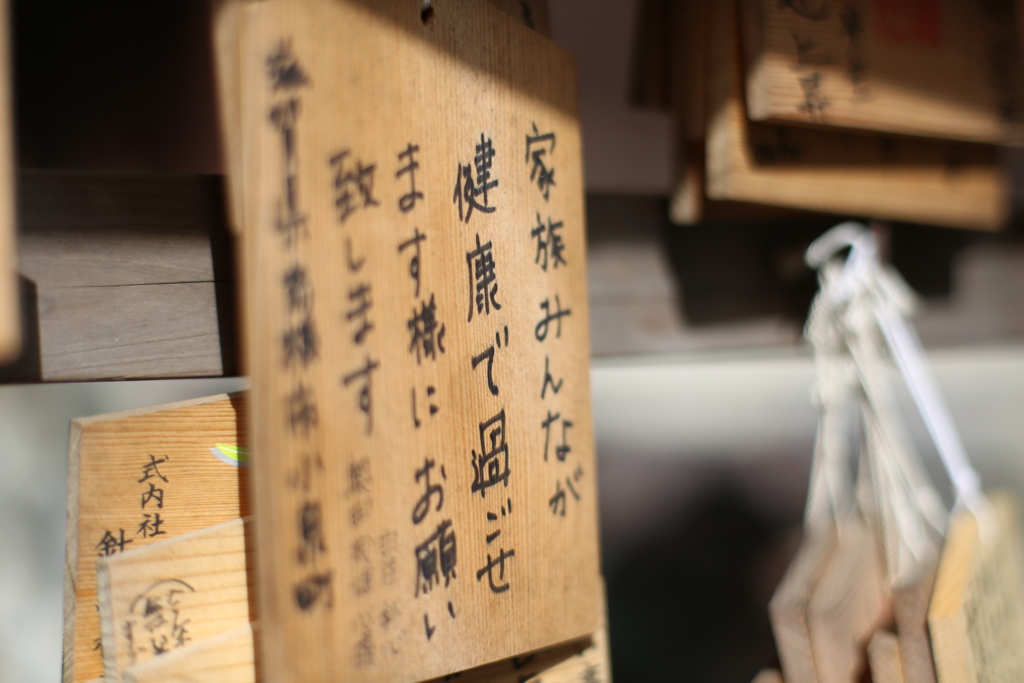 家族みんなが
健康で過ごせ
ます様にお願い
致します
滋賀県彦根市小泉町
式内社
針